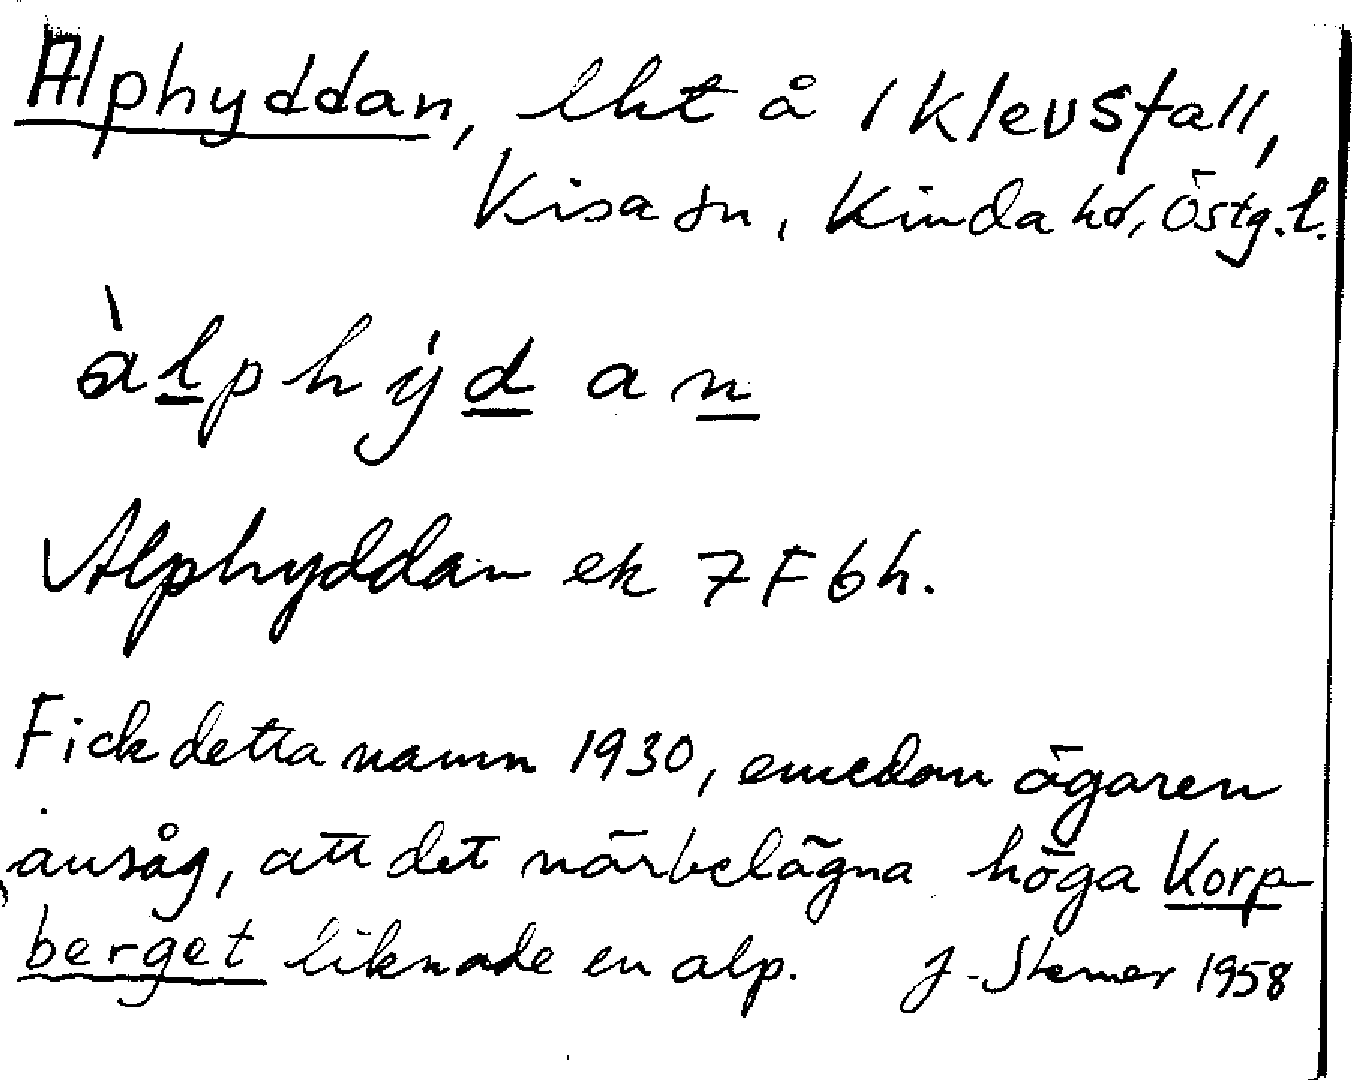 Alphyddan, lht å 1 Klevsfall,
Kisa sn, Kinda hd, Östg.l.
àlphýdan
Alphyddan ek 7F6h.
Fick detta namn 1930, emedan ägaren
ansåg, att det närbelägna höga Korp-
berget liknade en alp. J. Stemer 1958